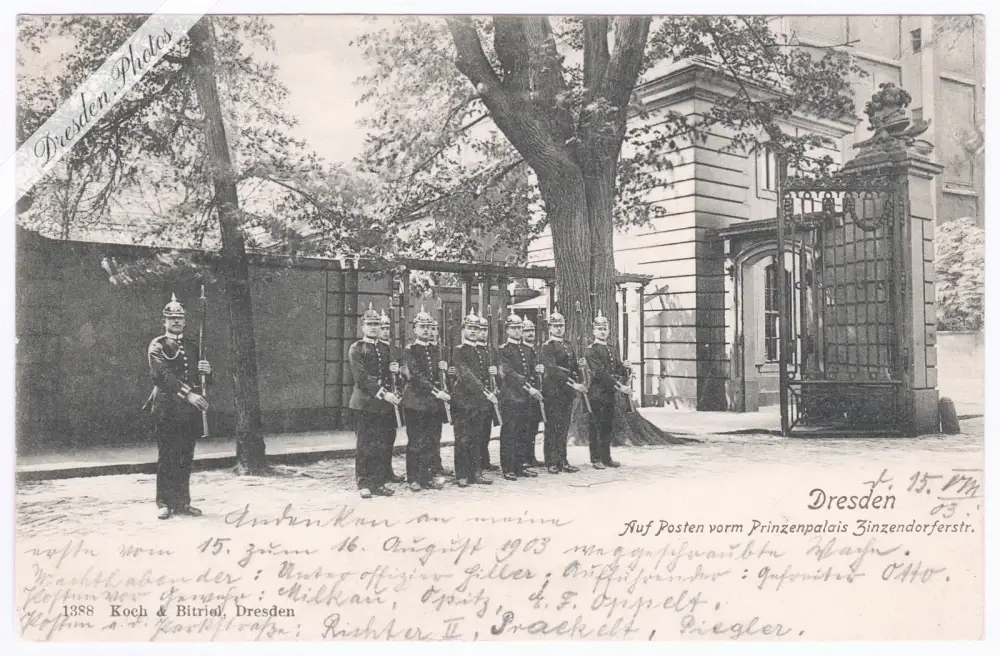 Dresden Photos
Dresden
d. 15. VIII. 03.
Auf Posten vorm Prinzenpalais Zinzendorferstr.
Andenken an meine
erste vom 15. zum 16. August 1903 weggeschraubte Wache.
Wachthabender: Unteroffizier Hiller, Aufführender: Gefreiter Otto.
Posten vor Gewehr: Milkau, Opitz, E. F. Oppelt.
1388 Koch & Bitriol, Dresden
Posten a. d. Parkstraße: Richter II, Prackelt, Piegler.